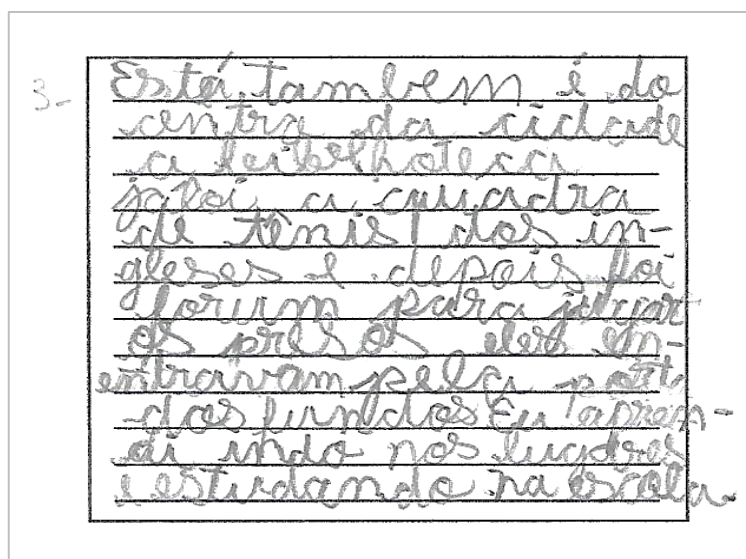 3- Está tambem é do
centra da cidade
a beibelhoteca
já foi a cquadra
de tênis dos in-
gleses e depois foi
forum para julgar
os presos eles en-
entravam pela porta
dos fundos Eu apren-
di indo nos lugares
e estudando na escola.